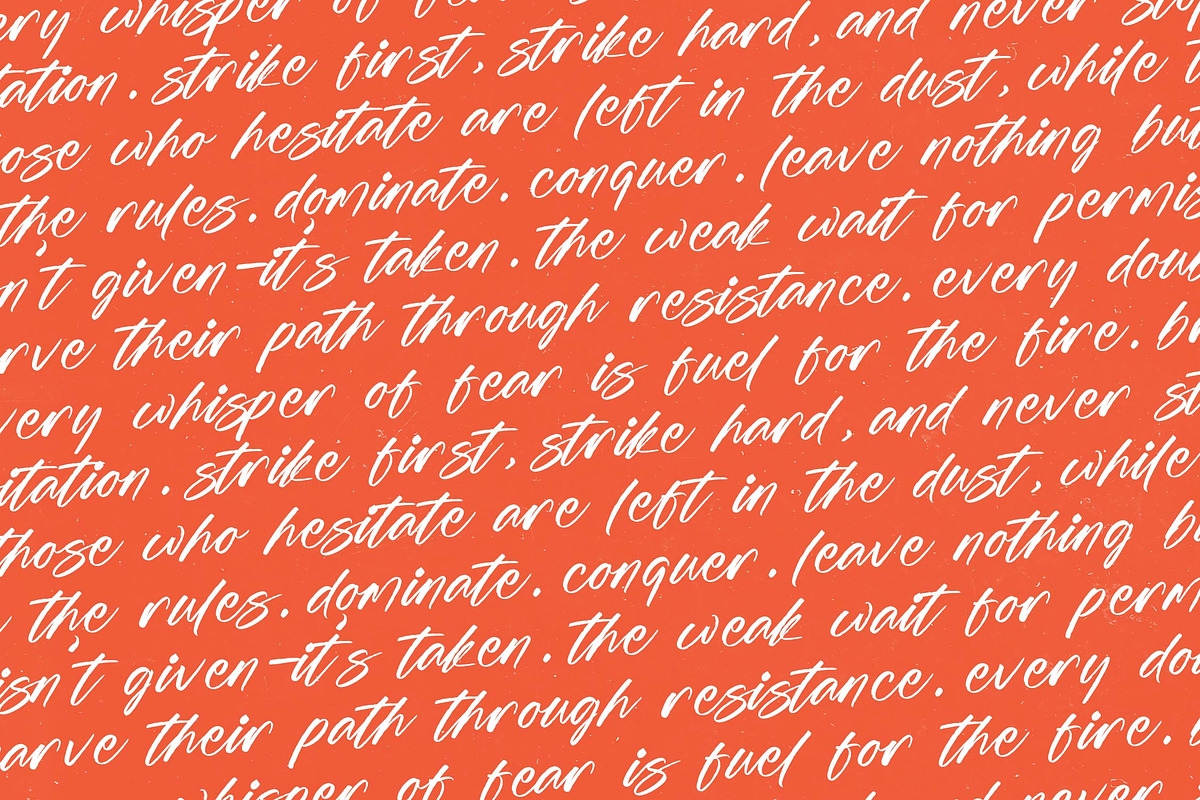 ery whisper of fear
tation. strike first, strike hard, and never stop
ose who hesitate are left in the dust, while
the rules. dominate. conquer. leave nothing but
n't given—it's taken. the weak wait for permis
rve their path through resistance. every doub
very whisper of fear is fuel for the fire. b
itation. strike first, strike hard, and never st
those who hesitate are left in the dust, while
the rules. dominate. conquer. leave nothing b
isn't given—it's taken. the weak wait for perm
arve their path through resistance. every dou
whisper of fear is fuel for the fire.
and never